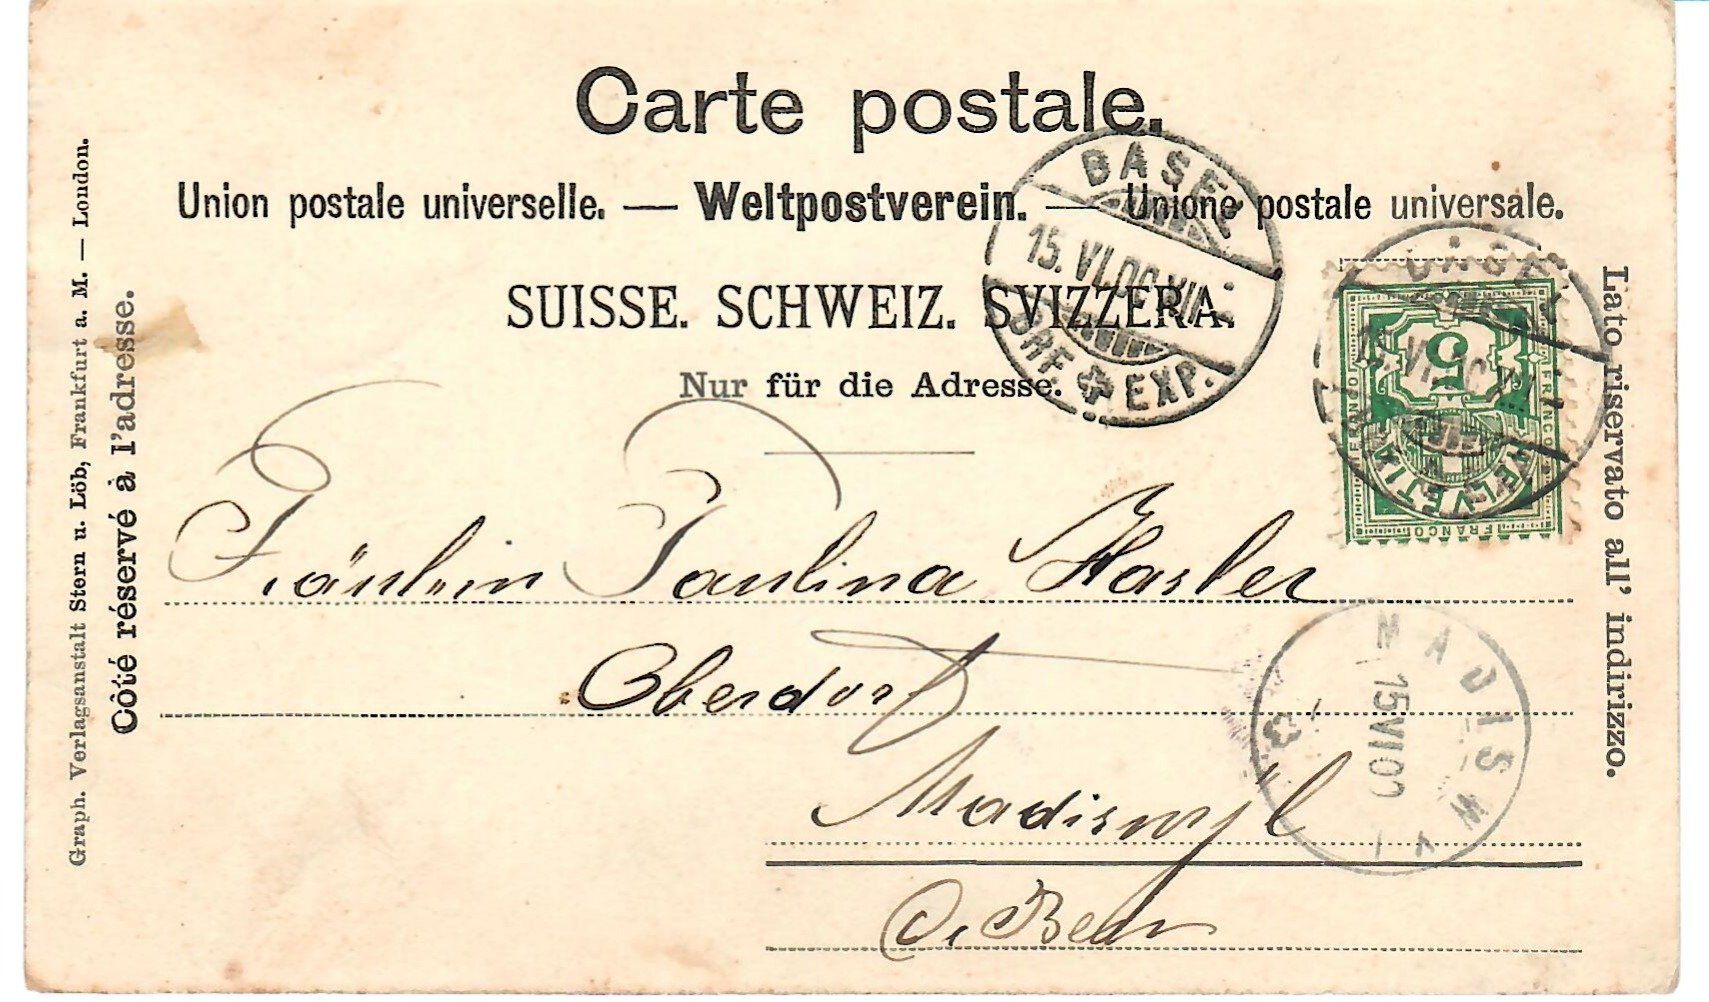 Carte postale.
Union postale universelle. — Weltpostverein. — Unione postale universale.
SUISSE. SCHWEIZ. SVIZZERA.
Nur für die Adresse.
Côté réservé à l'adresse.
Graph. Verlagsanstalt Stern u. Löb, Frankfurt a. M. — London.
Lato riservato all' indirizzo.
BASEL
15. VI.00.
BRF. EXP.
BASEL
5
FRANCO
FRANCO
FRANCO
HELVETIA
Fräulein Paulina Hasler
Oberdorf
Madiswyl
Ct. Bern
MADISWY
15 VI 00